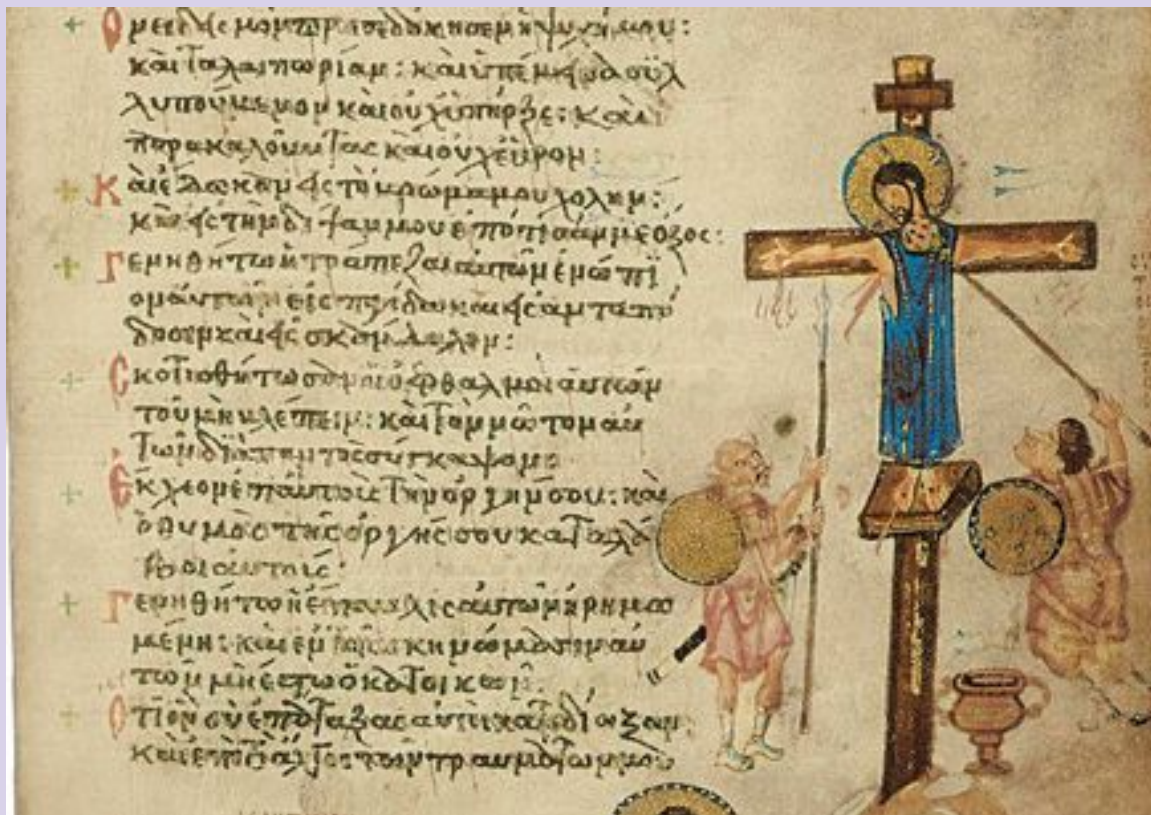 Ὀνειδισμὸν προσεδόκησεν ἡ ψυχή μου:
καὶ ταλαιπωρίαν: καὶ ὑπέμεινα συλ
λυπούμενον καὶ οὐχ ὑπῆρξε: καὶ
παρακαλοῦντας καὶ οὐχ εὗρον:
Καὶ ἔδωκαν εἰς τὸ βρῶμά μου χολήν:
καὶ εἰς τὴν δίψαν μου ἐπότισάν με ὄξος:
Γενηθήτω ἡ τράπεζα αὐτῶν ἐνώπι
ον αὐτῶν εἰς παγίδα καὶ εἰς ἀνταπό
δοσιν καὶ εἰς σκάνδαλον:
Σκοτισθήτωσαν οἱ ὀφθαλμοὶ αὐτῶν
τοῦ μὴ βλέπειν: καὶ τὸν νῶτον αὐ
τῶν διὰ παντὸς σύγκαμψον
Ἔκχεον ἐπ αὐτοὺς τὴν ὀργήν σου: καὶ
ὁ θυμὸς τῆς ὀργῆς σου καταλά
βοι αὐτούς:
Γενηθήτω ἡ ἔπαυλις αὐτῶν ἠρημω
μένη: καὶ ἐν τοῖς σκηνώμασιν αὐ
τῶν μὴ ἔστω ὁ κατοικῶν:
Ὅτι ὃν σὺ ἐπάταξας αὐτοὶ κατεδίωξαν:
καὶ ἐπὶ τὸ ἄλγος τῶν τραυμάτων μου